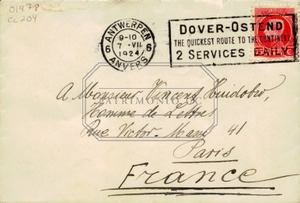 01478
CL 204
ANTWERPEN
6 9-10 6
7 - VII
1924
ANVERS
DOVER-OSTEND
THE QUICKEST ROUTE TO THE CONTINENT
2 SERVICES DAILY
PATRIMONIO
A Monsieur Vincent Huidobro,
Homme de Lettre
Rue Victor Massé 41
Paris
France